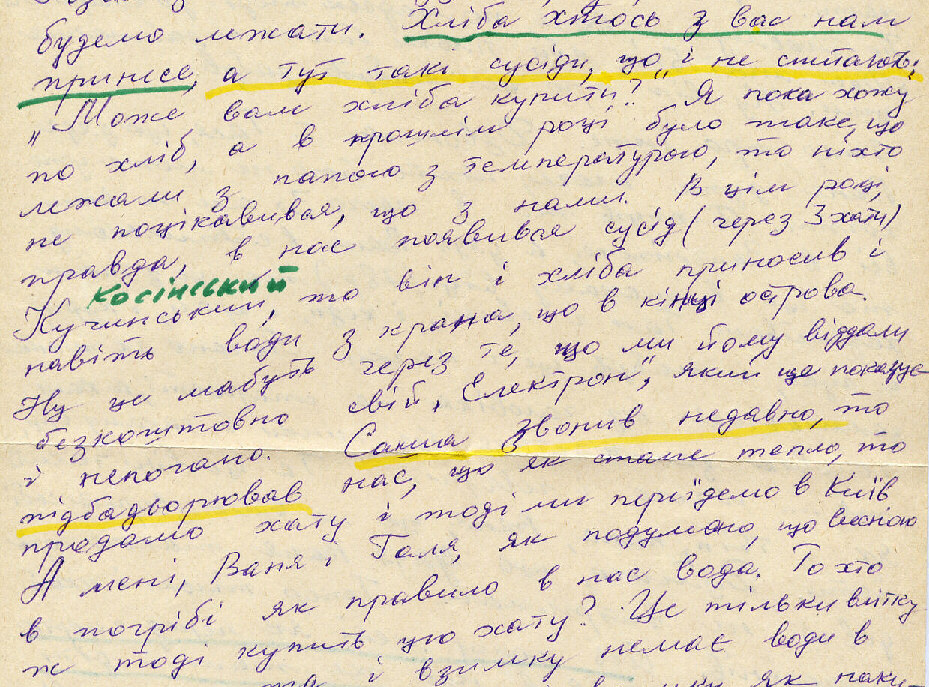 будемо лежати. Хліба хтось з вас нам
принесе, а тут такі сусіди, що і не спитають:
"Може вам хліба купити?" Я пока хожу
по хліб, а в прошлім році було таке, що
лежали з папою з температурою, то ніхто
не поцікавився, що з нами. В цім році,
правда, в нас появився сусід (через 3 хати)
Косінський
Кучинський, то він і хліба приносив і
навіть води з крана, що в кінці острова.
Ну це мабуть через те, що ми йому віддали
безкоштовно свій „Електрон", який ще показує
і непогано. Саша звонив недавно, то
підбадьорював нас, що як стане тепло, то
продамо хату і тоді ми переїдемо в Київ
А мені, Ваня і Галя, як подумаю, що весною
в погрібі як правило в нас вода. То хто
ж тоді купить цю хату? Це тільки влітку
та і взимку немає води в
як